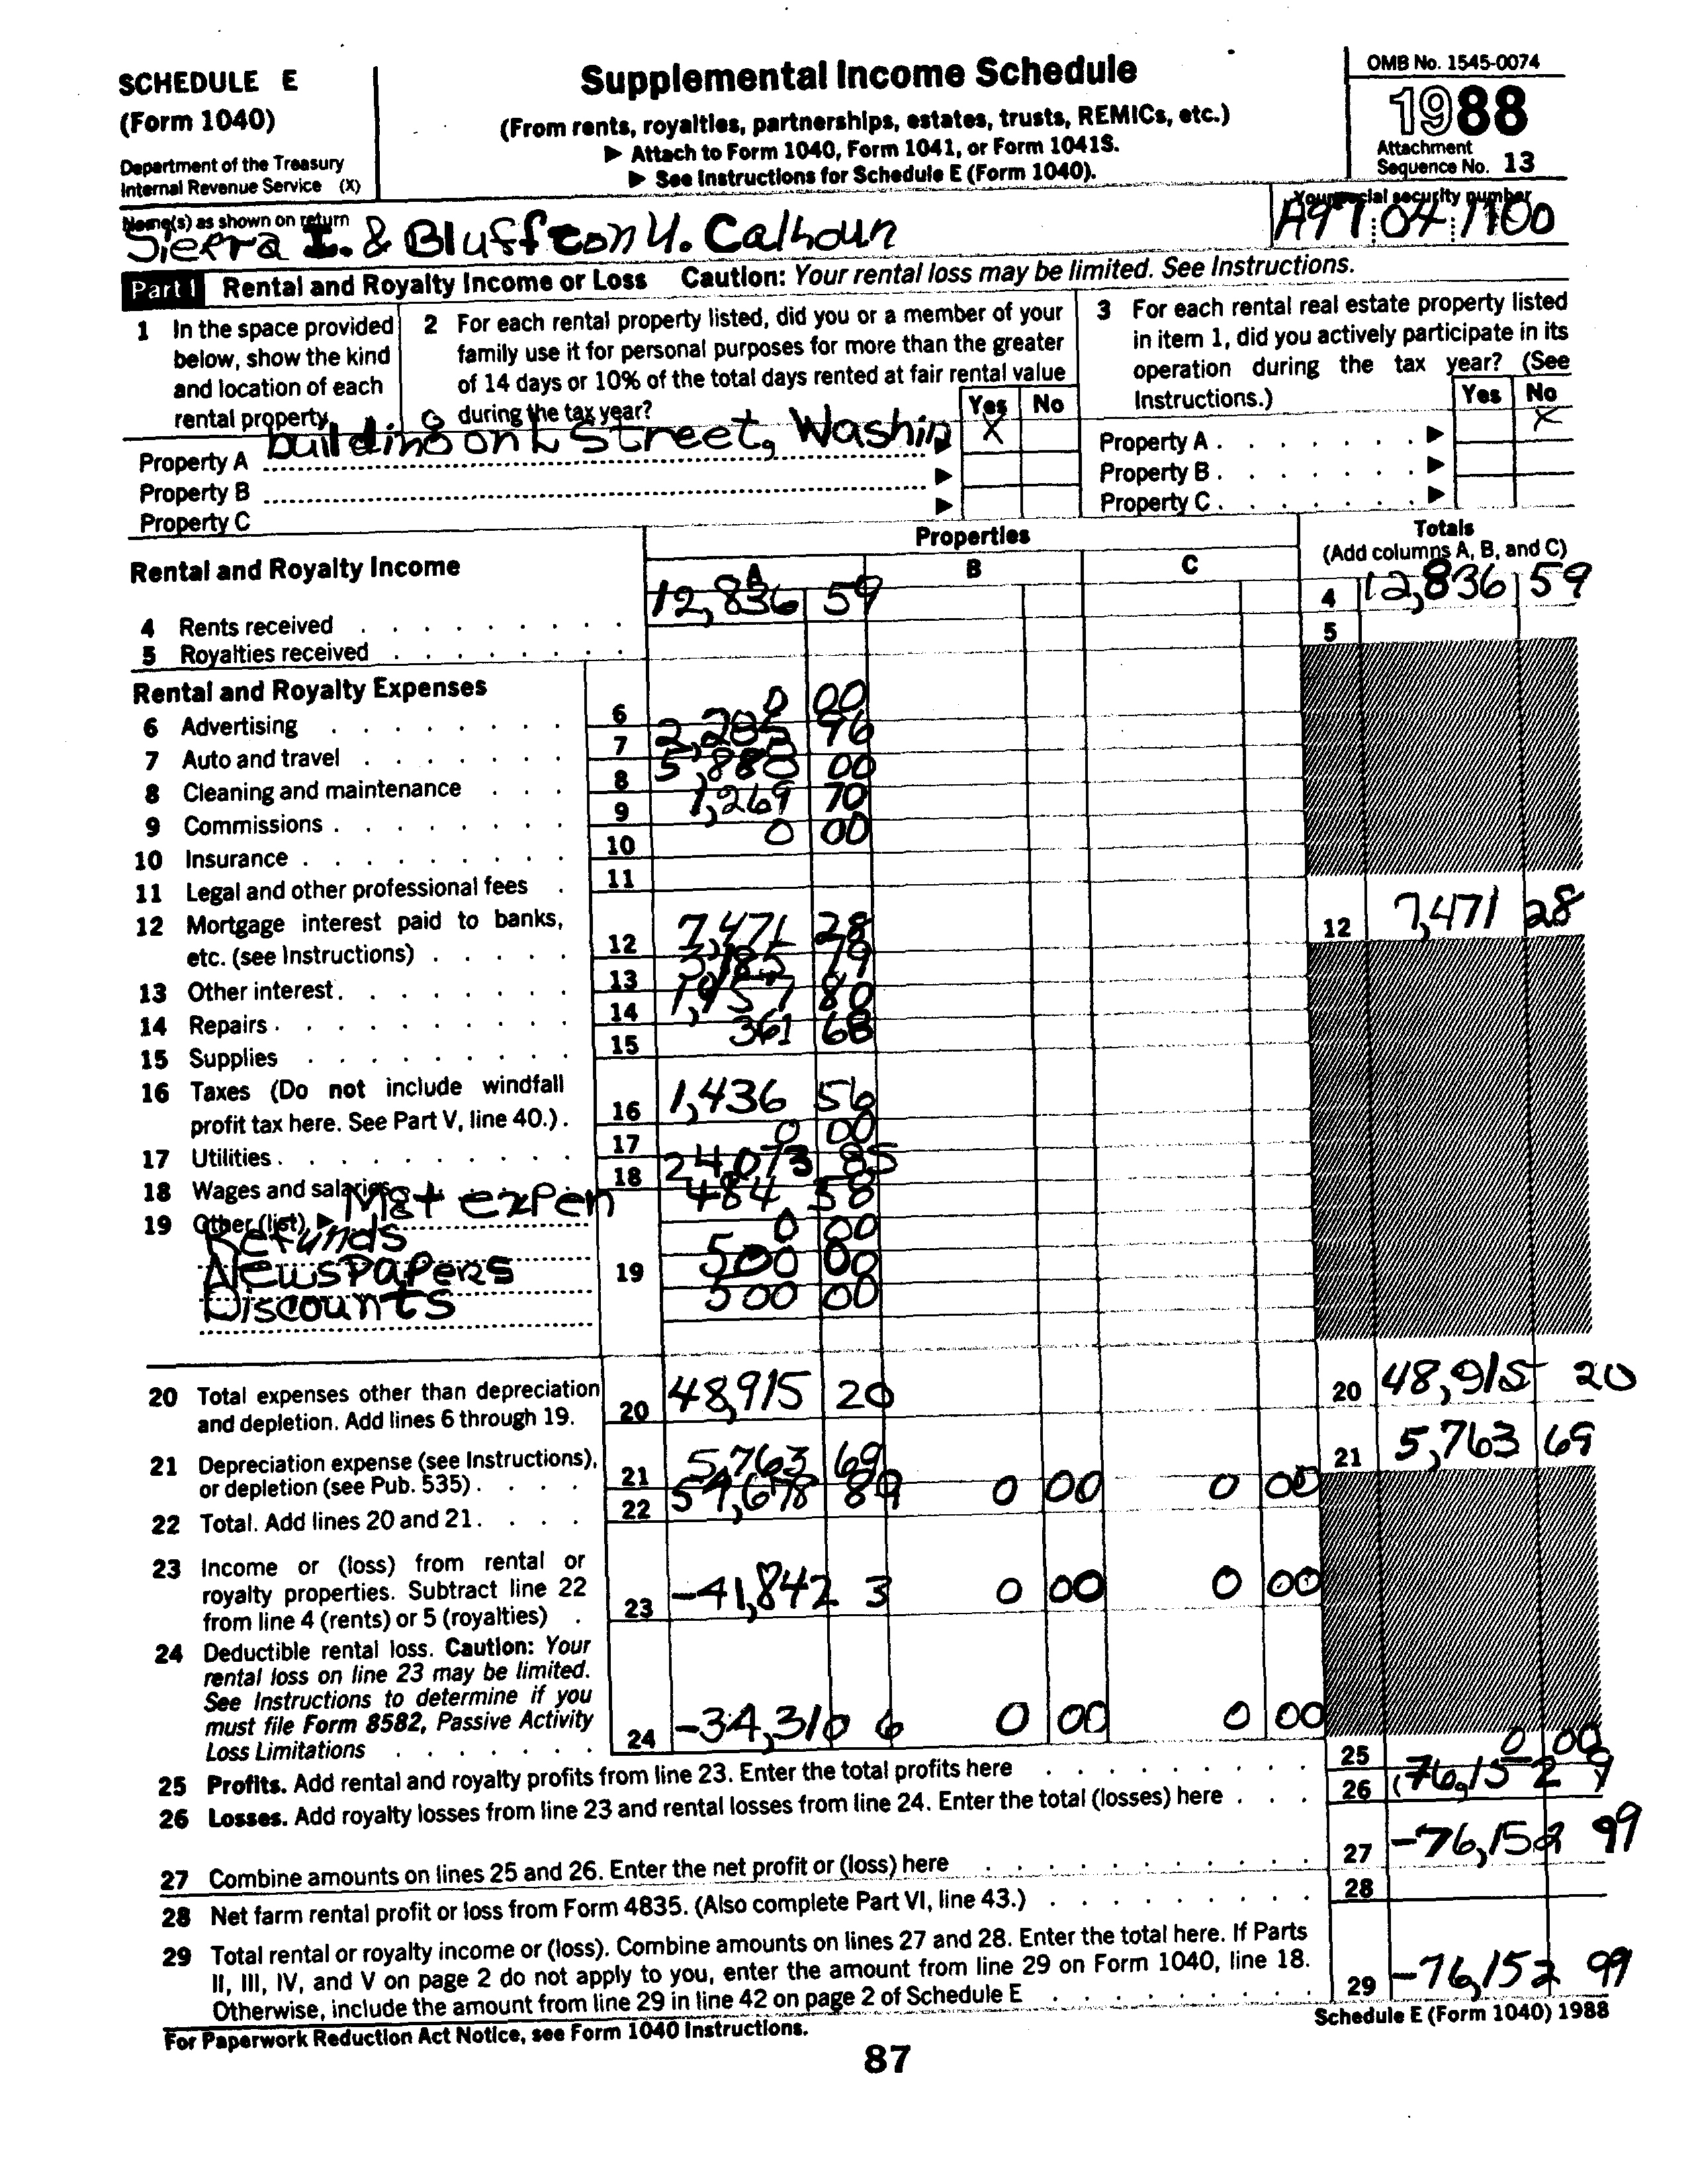 SCHEDULE E
(Form 1040)
Department of the Treasury
Internal Revenue Service (X)
Supplemental Income Schedule
(From rents, royalties, partnerships, estates, trusts, REMICs, etc.)
▶ Attach to Form 1040, Form 1041, or Form 1041S.
▶ See Instructions for Schedule E (Form 1040).
OMB No. 1545-0074
1988
Attachment
Sequence No. 13
Name(s) as shown on return
Sierra I. & Bluffton Y. Calhoun
Your social security number
A97 04 1100
Part I Rental and Royalty Income or Loss Caution: Your rental loss may be limited. See Instructions.
1 In the space provided
below, show the kind
and location of each
rental property.
2 For each rental property listed, did you or a member of your
family use it for personal purposes for more than the greater
of 14 days or 10% of the total days rented at fair rental value
during the tax year?
Yes No
3 For each rental real estate property listed
in item 1, did you actively participate in its
operation during the tax year? (See
Instructions.)
Yes No
Property A building on L Street, Washin ▶ X
Property B ▶
Property C ▶
Property A ▶ X
Property B ▶
Property C ▶
Rental and Royalty Income
Properties
A B C
Totals
(Add columns A, B, and C)
4 Rents received 12,836 59 4 12,836 59
5 Royalties received 5
Rental and Royalty Expenses
6 Advertising 6 0 00
7 Auto and travel 7 2,205 96
8 Cleaning and maintenance 8 5,880 00
9 Commissions 9 1,269 70
10 Insurance 10 0 00
11 Legal and other professional fees 11
12 Mortgage interest paid to banks,
etc. (see Instructions) 12 7,471 28 12 7,471 28
13 Other interest 13 3,185 79
14 Repairs 14 1,957 80
15 Supplies 15 361 68
16 Taxes (Do not include windfall
profit tax here. See Part V, line 40.) 16 1,436 56
17 Utilities 17 0 00
18 Wages and salaries 18 24,073 85
19 Other (list) ▶ Mgt expen 484 58
Refunds 0 00
Newspapers 19 500 00
Discounts 500 00
20 Total expenses other than depreciation
and depletion. Add lines 6 through 19. 20 48,915 20 20 48,915 20
21 Depreciation expense (see Instructions),
or depletion (see Pub. 535) 21 5,763 69 21 5,763 69
22 Total. Add lines 20 and 21 22 54,678 89 0 00 0 00
23 Income or (loss) from rental or
royalty properties. Subtract line 22
from line 4 (rents) or 5 (royalties) 23 -41,842 3 0 00 0 00
24 Deductible rental loss. Caution: Your
rental loss on line 23 may be limited.
See Instructions to determine if you
must file Form 8582, Passive Activity
Loss Limitations 24 -34,310 6 0 00 0 00
25 Profits. Add rental and royalty profits from line 23. Enter the total profits here 25 0 00
26 Losses. Add royalty losses from line 23 and rental losses from line 24. Enter the total (losses) here 26 (76,152 9
27 Combine amounts on lines 25 and 26. Enter the net profit or (loss) here 27 -76,152 99
28 Net farm rental profit or loss from Form 4835. (Also complete Part VI, line 43.) 28
29 Total rental or royalty income or (loss). Combine amounts on lines 27 and 28. Enter the total here. If Parts
II, III, IV, and V on page 2 do not apply to you, enter the amount from line 29 on Form 1040, line 18.
Otherwise, include the amount from line 29 in line 42 on page 2 of Schedule E 29 -76,152 99
For Paperwork Reduction Act Notice, see Form 1040 Instructions.
Schedule E (Form 1040) 1988
87